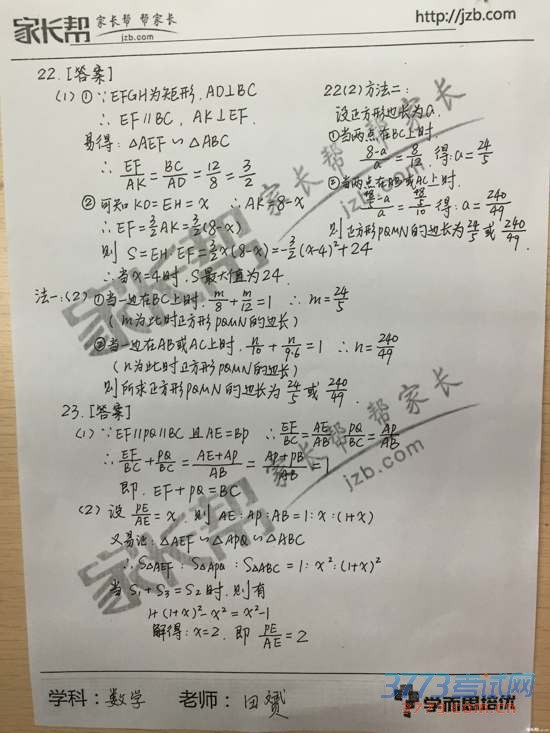 家长帮 家长帮 帮家长
jzb.com
http://jzb.com
22.[答案]
(1) ① ∵ EFGH为矩形, AD⊥BC
∴ EF∥BC, AK⊥EF.
易得: △AEF ∽ △ABC
∴ EF/AK = BC/AD = 12/8 = 3/2
② 可知 KD=EH=x ∴ AK=8-x
∴ EF=3/2AK=3/2(8-x)
则 S=EH·EF=3/2x(8-x)=-3/2(x-4)²+24
∴ 当x=4时, S最大值为24.
22(2)方法二:
设正方形边长为a.
①当两点在BC上时,
(8-a)/a = 8/12, 得: a=24/5
②当两点在AB或AC上时.
(48/5-a)/a = (48/5)/10 得: a=240/49
则正方形PQMN的边长为24/5或240/49.
法一:(2) ①当一边在BC上时. m/8+m/12=1 ∴ m=24/5
(m为此时正方形PQMN的边长)
②当一边在AB或AC上时. n/10+n/9.6=1 ∴ n=240/49
(n为此时正方形PQMN的边长)
则所求正方形PQMN的边长为24/5或240/49.
23.[答案]
(1) ∵ EF∥PQ∥BC 且AE=BP ∴ EF/BC=AE/AB PQ/BC=AP/AB
∴ EF/BC+PQ/BC=(AE+AP)/AB=(AP+PB)/AB=1
即. EF+PQ=BC
(2) 设 PE/AE=x. 则 AE:AP:AB=1:x:(1+x)
又易得: △AEF∽△APQ∽△ABC
∴ S△AEF:S△APQ:S△ABC=1:x²:(1+x)²
当 S₁+S₃=S₂时, 则有
1+(1+x)²-x²=x²-1
解得: x=2, 即 PE/AE=2
家长帮 帮家长
jzb.com
家长帮 帮家长
jzb.com
学科: 数学 老师: 田赟
学而思培优
3773考试网